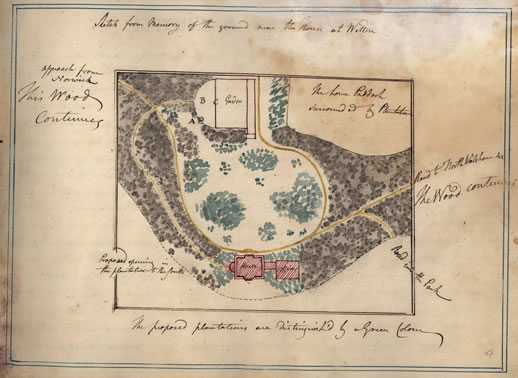 Sketch from Memory of the ground near the House at Witton
approach from
Norwich
This Wood
Continues
B C
Garden
A
The home Paddock
surrounded by Plantation
Road to North Walsham
The Wood continues
Proposed opening
the plantation to the south
House
Road in the Park
The proposed plantations are Distinguish'd by a Green Colour
4